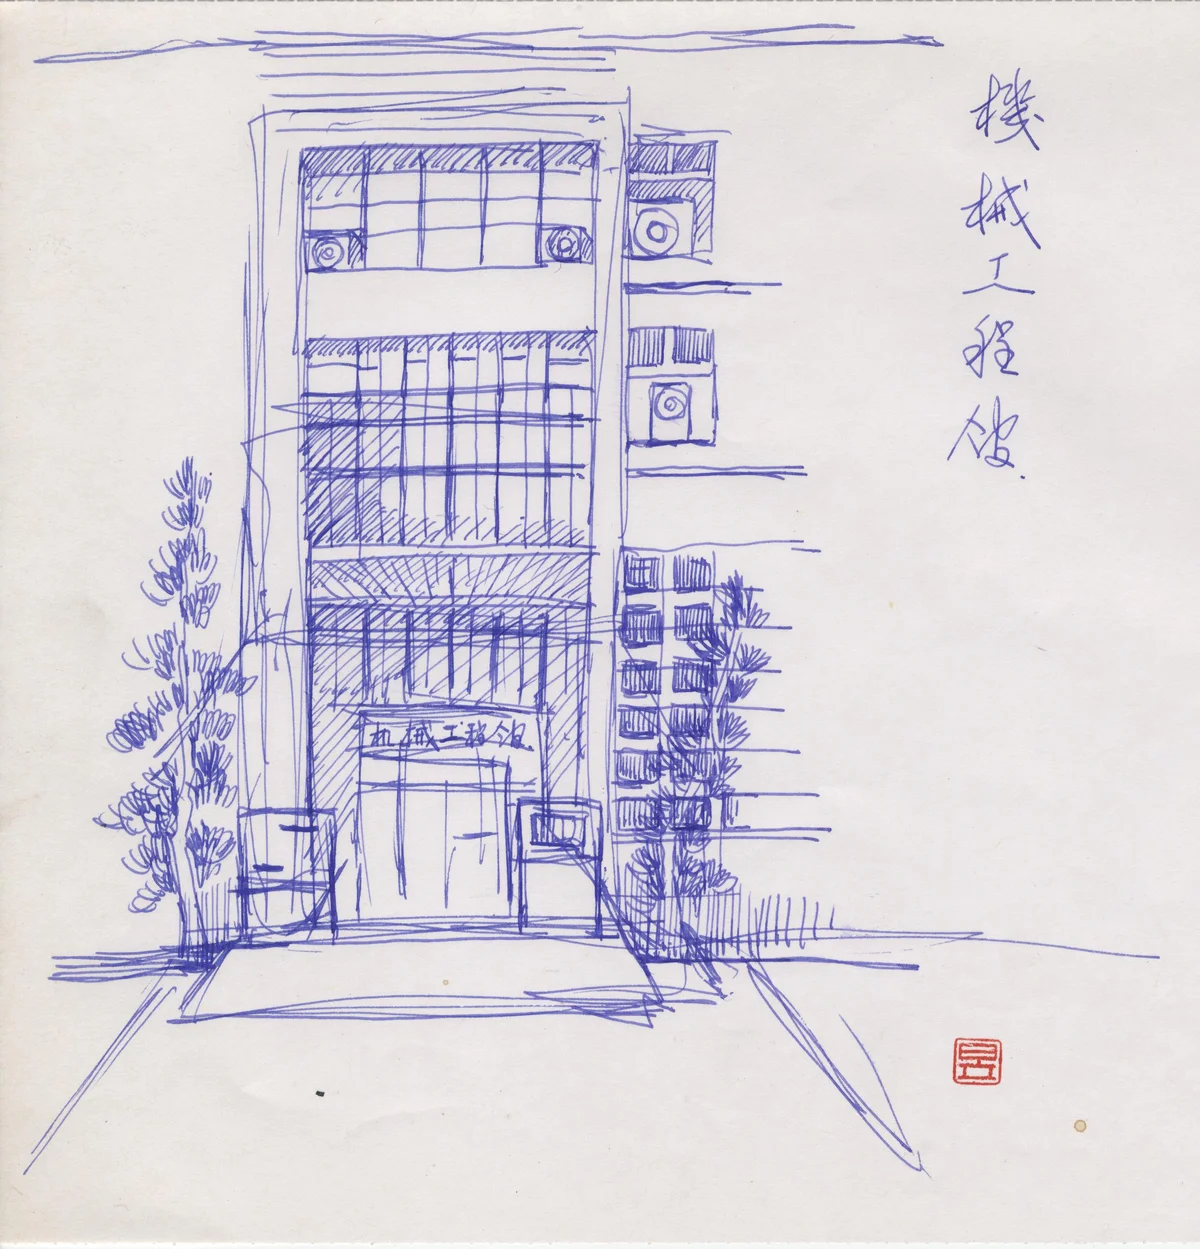 機械工程館
机械工程館